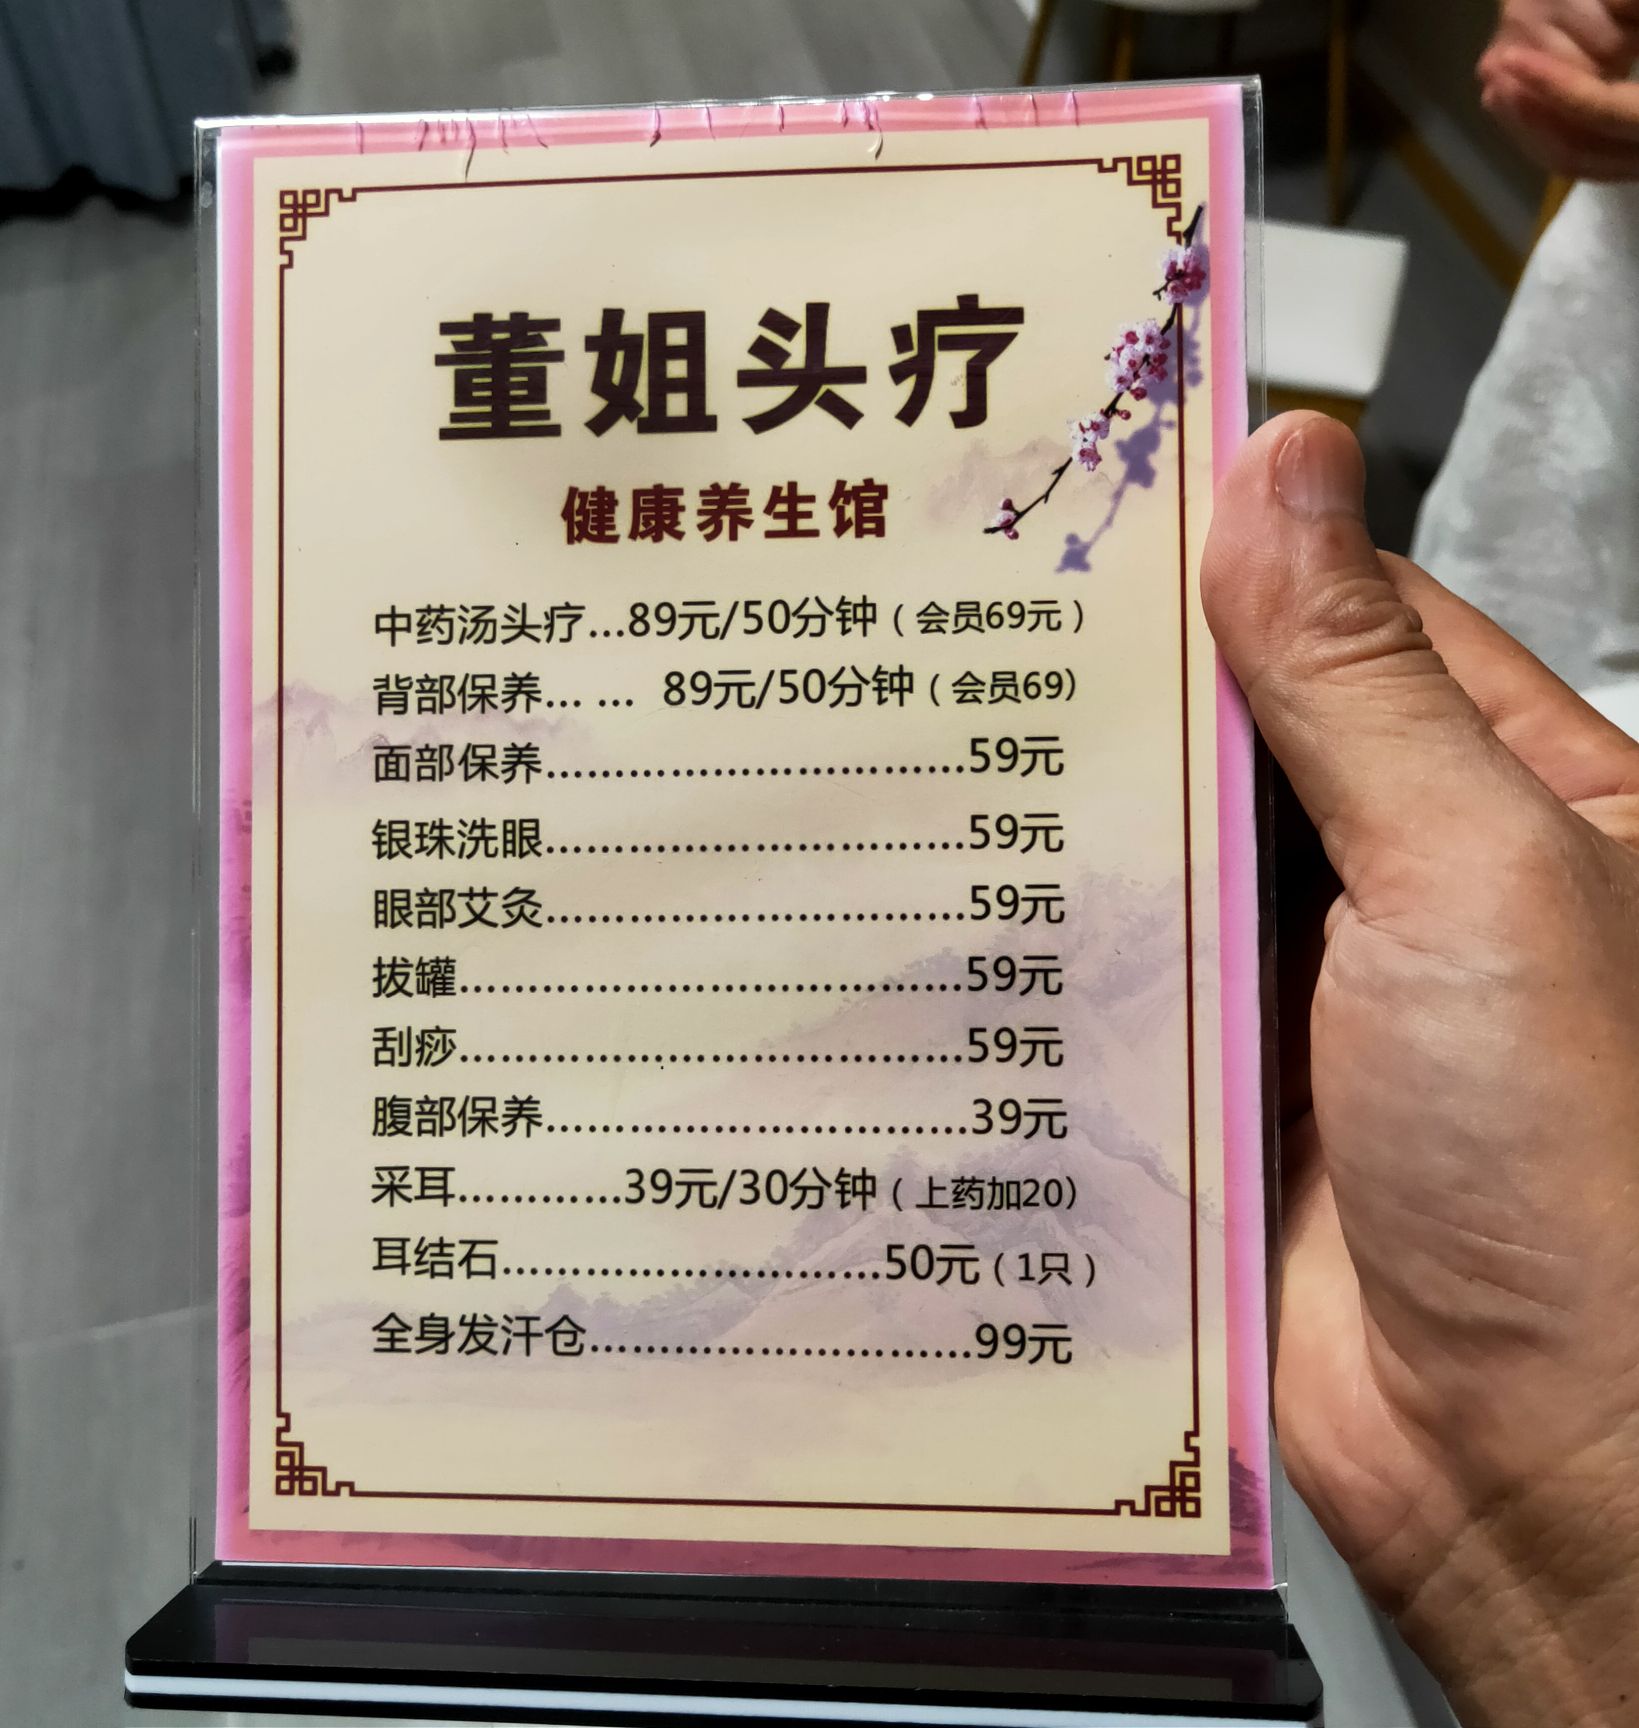 董姐头疗
健康养生馆
中药汤头疗...89元/50分钟（会员69元）
背部保养... ... 89元/50分钟（会员69）
面部保养..............................59元
银珠洗眼..............................59元
眼部艾灸..............................59元
拔罐....................................59元
刮痧....................................59元
腹部保养..............................39元
采耳............39元/30分钟（上药加20）
耳结石...........................50元（1只）
全身发汗仓...........................99元